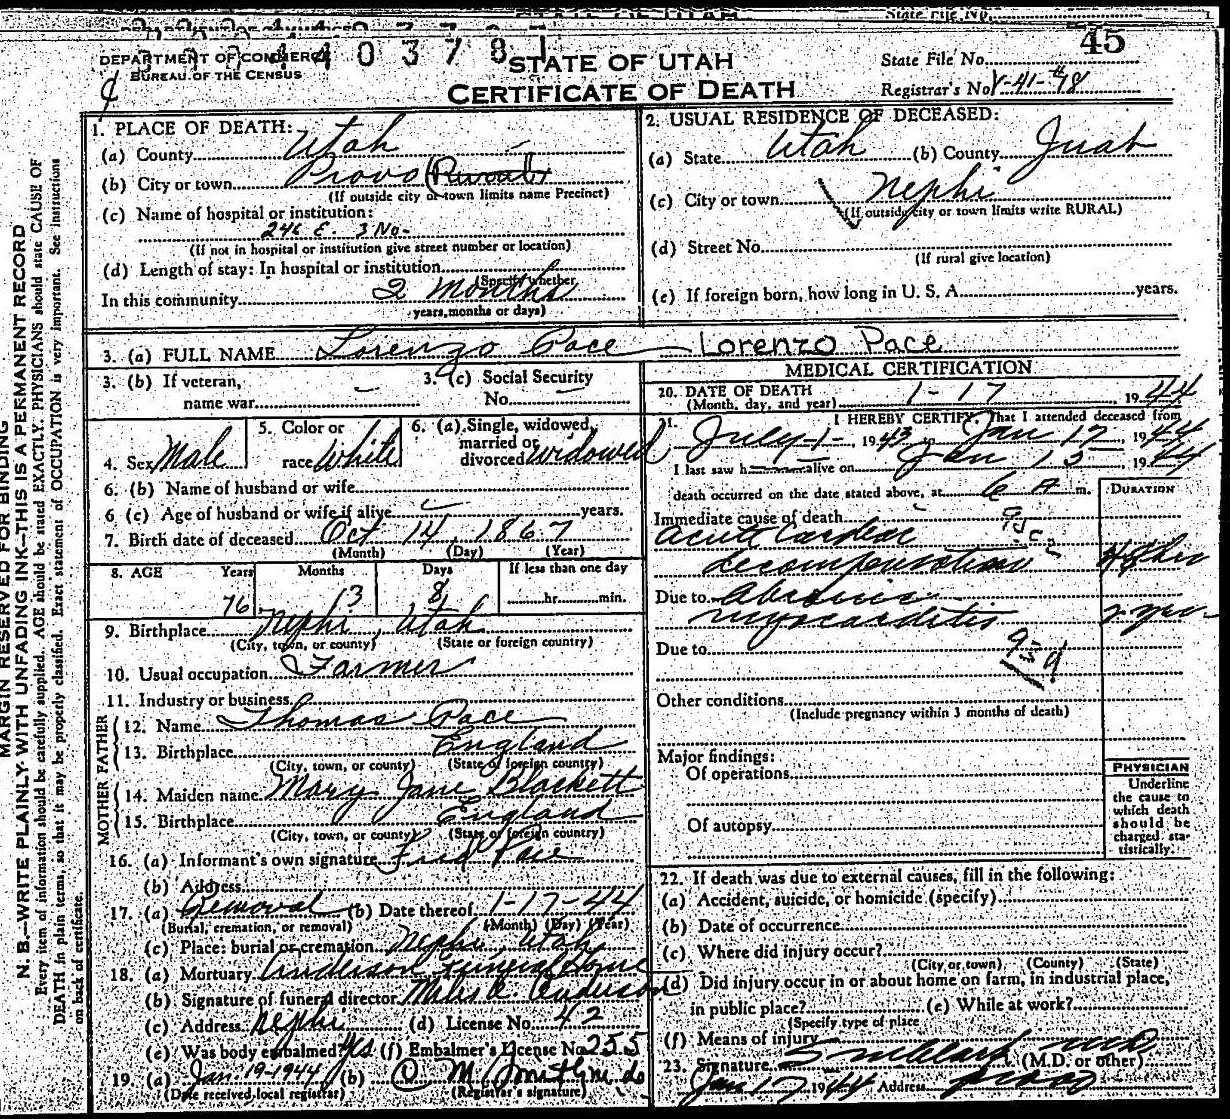 State File No.
DEPARTMENT OF COMMERCE
BUREAU OF THE CENSUS
40378
STATE OF UTAH
CERTIFICATE OF DEATH
45
State File No.
Registrar's No.
MARGIN RESERVED FOR BINDING
N. B.—WRITE PLAINLY, WITH UNFADING INK—THIS IS A PERMANENT RECORD
Every item of information should be carefully supplied. AGE should be stated EXACTLY. PHYSICIANS should state CAUSE OF
DEATH in plain terms, so that it may be properly classified. Exact statement of OCCUPATION is very important. See instructions
on back of certificate.
1. PLACE OF DEATH:
(a) County Utah
(b) City or town Provo (Rural)
(If outside city or town limits name Precinct)
(c) Name of hospital or institution:
246 E. 3 No.
(If not in hospital or institution give street number or location)
(d) Length of stay: In hospital or institution
(Specify whether
In this community 2 months
years, months or days)
2. USUAL RESIDENCE OF DECEASED:
(a) State Utah (b) County Juab
(c) City or town Nephi
(If outside city or town limits write RURAL)
(d) Street No.
(If rural give location)
(e) If foreign born, how long in U. S. A. years.
3. (a) FULL NAME Lorenzo Pace Lorenzo Pace
3. (b) If veteran,
name war
3. (c) Social Security
No.
4. Sex Male
5. Color or
race White
6. (a) Single, widowed,
married or
divorced widowed
6. (b) Name of husband or wife
6 (c) Age of husband or wife if alive years.
7. Birth date of deceased Oct 14, 1867
(Month) (Day) (Year)
8. AGE Years Months Days If less than one day
76 3 hr. min.
9. Birthplace Nephi, Utah
(City, town, or county) (State or foreign country)
10. Usual occupation Farmer
11. Industry or business
FATHER
12. Name Thomas Pace
13. Birthplace England
(City, town, or county) (State or foreign country)
MOTHER
14. Maiden name Mary Jane Blackett
15. Birthplace England
(City, town, or county) (State or foreign country)
16. (a) Informant's own signature Fred Pace
(b) Address
17. (a) Removal (b) Date thereof 1-17-44
(Burial, cremation, or removal) (Month) (Day) (Year)
(c) Place: burial or cremation Nephi Utah
18. (a) Mortuary Anderson Funeral Home
(b) Signature of funeral director Miles A. Anderson
(c) Address Nephi (d) License No. 42
(e) Was body embalmed? yes (f) Embalmer's License No. 255
19. (a) Jan. 19-1944 (b)
(Date received local registrar) (Registrar's signature)
MEDICAL CERTIFICATION
20. DATE OF DEATH 1-17 1944
(Month, day, and year)
21. I HEREBY CERTIFY, That I attended deceased from
July 1-, 1943 to Jan 17, 1944
I last saw h alive on Jan 15 1944
death occurred on the date stated above, at 6 A m.
DURATION
Immediate cause of death
Acute Cardiac
decompensation
Due to
myocarditis 2 yrs
Due to 93d
Other conditions
(Include pregnancy within 3 months of death)
Major findings:
Of operations
Of autopsy
PHYSICIAN
Underline
the cause to
which death
should be
charged sta-
tistically.
22. If death was due to external causes, fill in the following:
(a) Accident, suicide, or homicide (specify)
(b) Date of occurrence
(c) Where did injury occur?
(City or town) (County) (State)
(d) Did injury occur in or about home on farm, in industrial place,
in public place? (e) While at work?
(Specify type of place
(f) Means of injury
23. Signature (M.D. or other)
Jan 17 1944 Address Provo